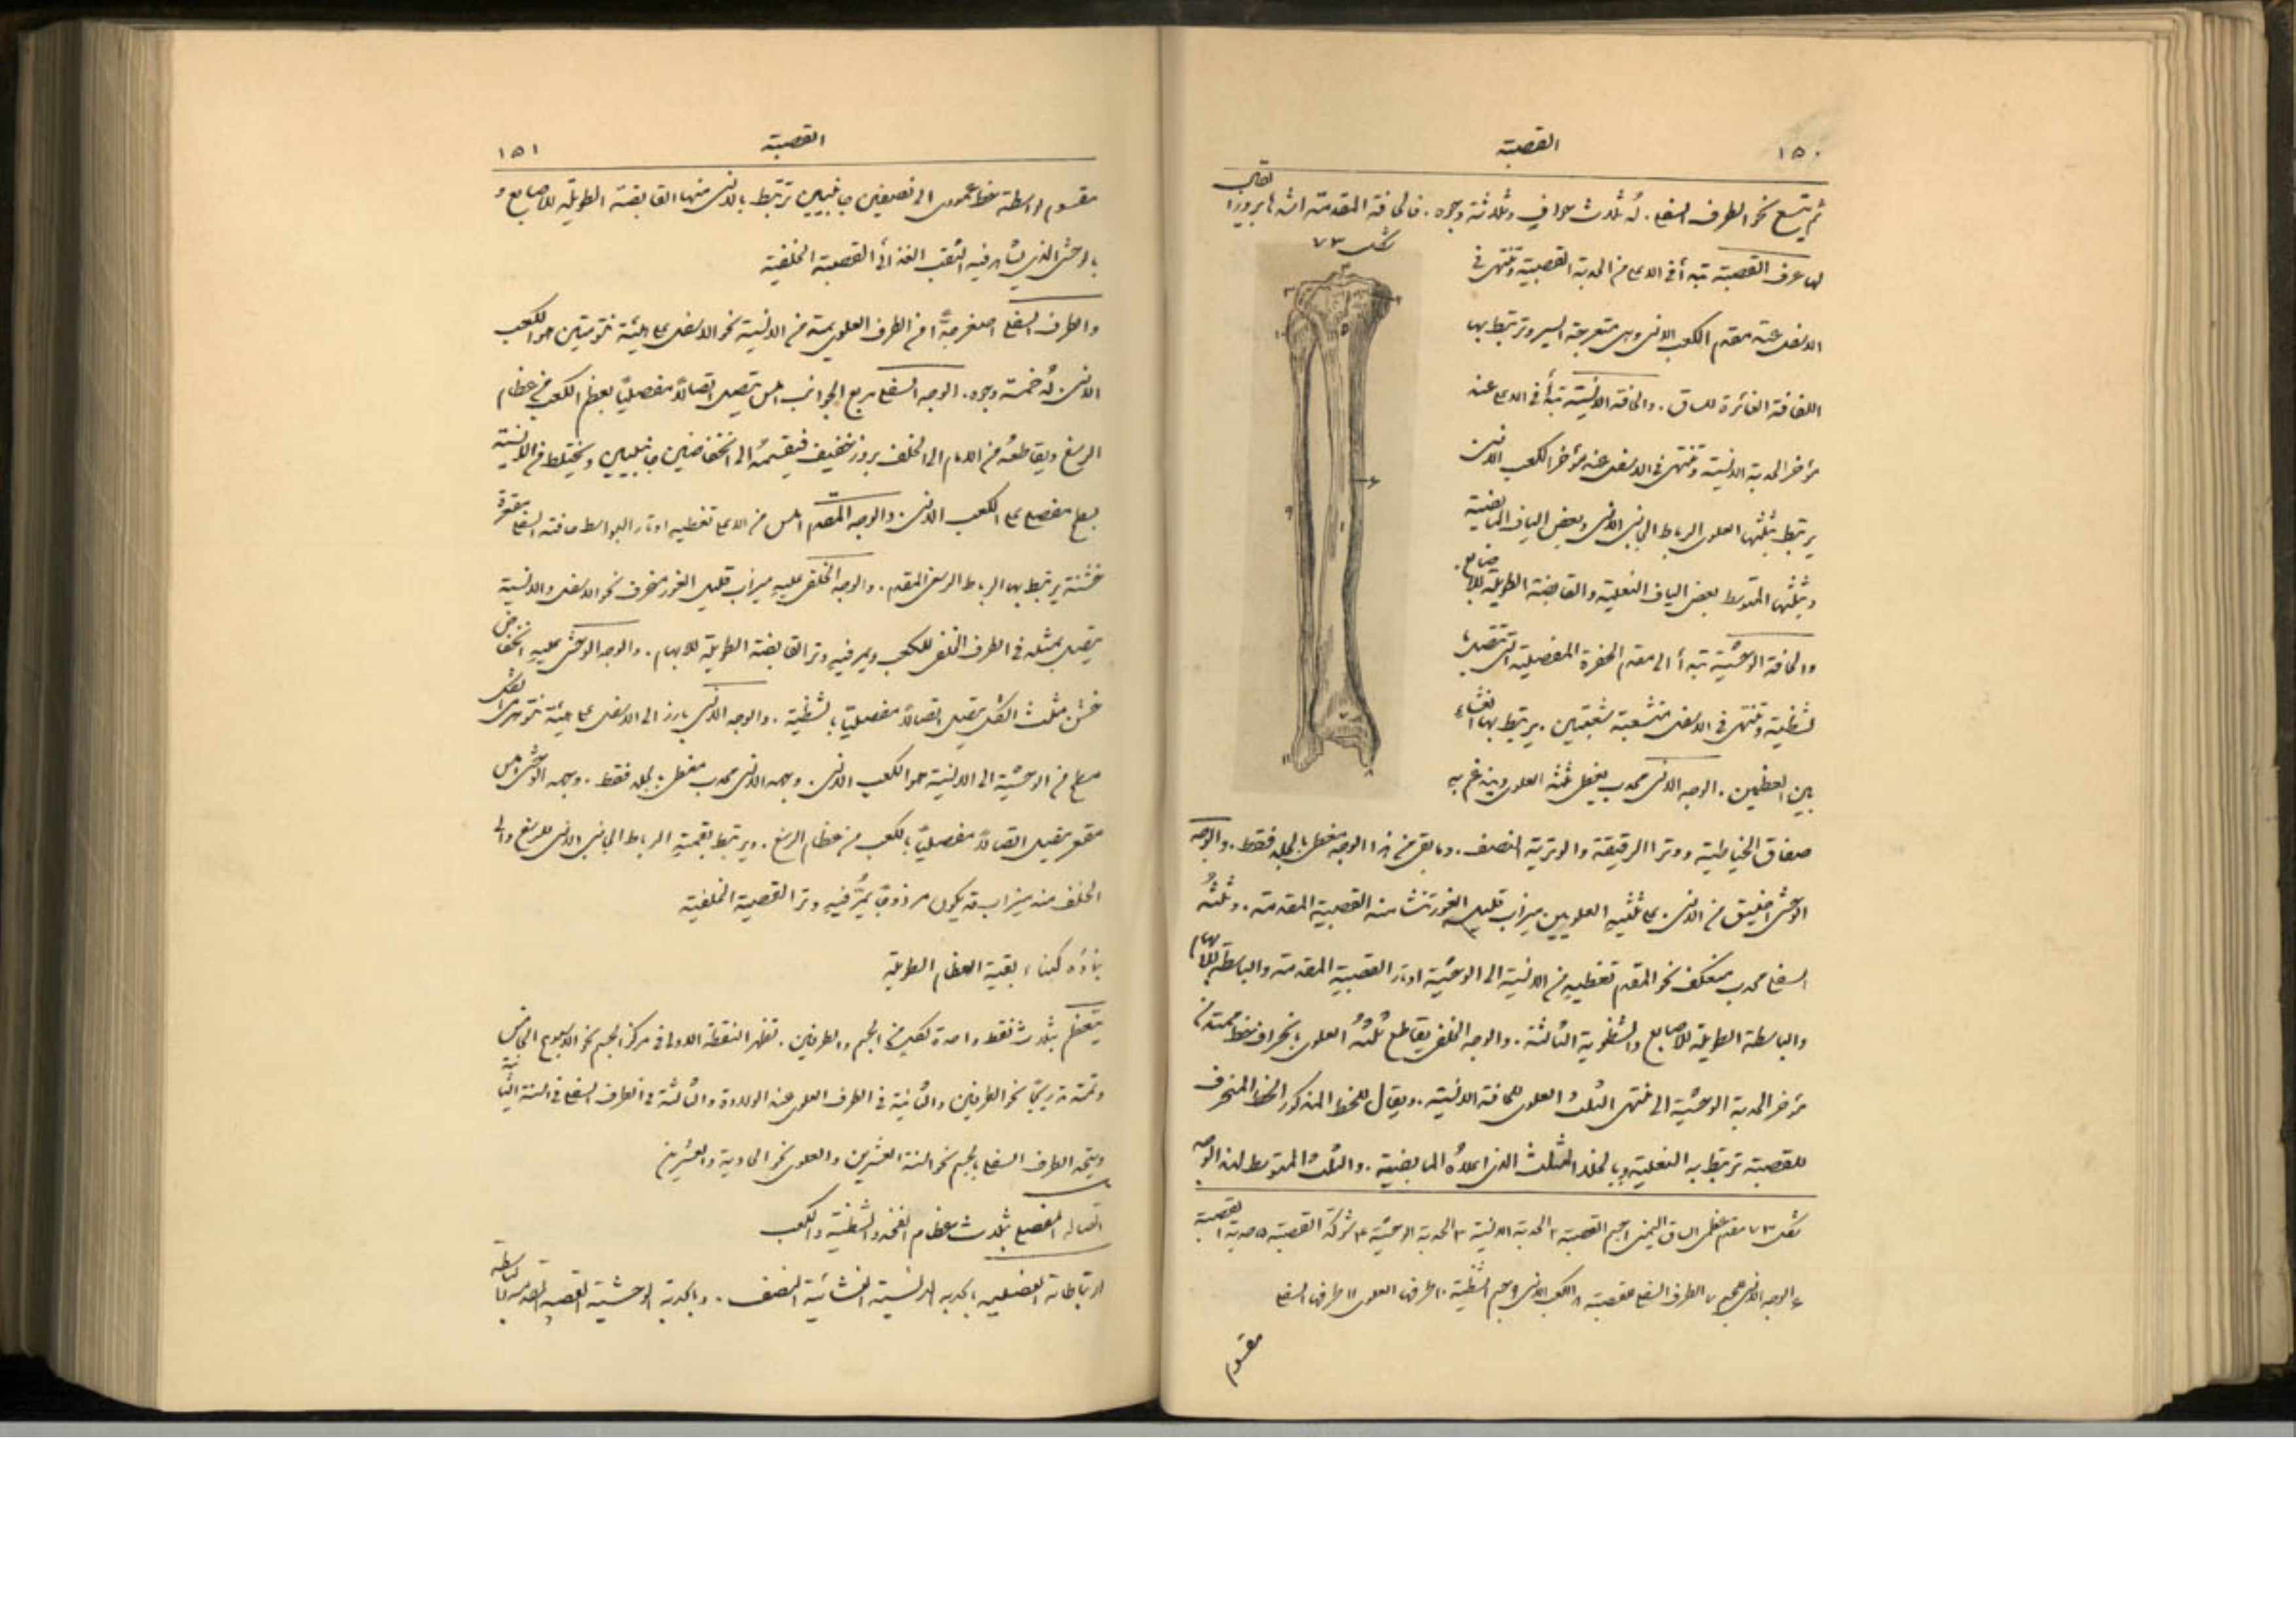 ١٥٠
القصبة
ثم يتسع نحو الطرف السفلي. لهُ ثلاث حوافٍ وثلاثة وجوه. فالحافة المقدمة اشدها بروزًا يقال
شكل ٧٣
لها عرف القصبة تبدأ في الاعلى من الحدبة القصبية وتنتهي في
الاسفل عند مقدم الكعب الانسي وهي متعرجة اليسير وترتبط بها
اللفافة الغائرة للساق. والحافة الانسية تبدأ في الاعلى عند
مؤخر الحدبة الانسية وتنتهي في الاسفل عند مؤخر الكعب الانسي
يرتبط بثلثها العلوي الرباط الجانبي الانسي وبعض الياف المابضية
وبثلثها المتوسط بعض الياف النعلية والقابضة الطويلة للاصابع.
والحافة الوحشية تبدأ الى مقدم الحفرة المفصلية التي تتصل با
لشظية وتنتهي في الاسفل متشعبة شعبتين. يرتبط بها الغشاء
بين العظمين. الوجه الانسي محدب يغطي ثلثه العلوي ويندغم به
صفاق الخياطية ووترا الرقيقة والوترية النصف. وما بقي من هذا الوجه مغطى بالجلد فقط. والوجه
الوحشي اضيق من الانسي. على ثلثيهِ العلويين ميزاب قليل الغور تنشا منه القصبية المقدمة. وثلثهُ
السفلي محدب منعكف نحو المقدم تغطيهِ من الانسية الى الوحشية اوتار القصبية المقدمة والباسطة للابهام
والباسطة الطويلة للاصابع والشظوية الثالثة. والوجه الخلفي يقاطع ثلثهُ العلوي بانحراف خط ممتد من
مؤخر الحدبة الوحشية الى منتهى الثلث العلوي للحافة الانسية. ويقال للخط المذكور الخط المنحرف
للقصبة ترتبط به النعلية وبالخلاء المثلث الذي اعلاهُ المابضية. والثلث المتوسط لهذا الوجه
شكل ٧٣ مقدم عظمي الساق اليمنى ١ جسم القصبة ٢ الحدبة الانسية ٣ الحدبة الوحشية ٤ شوكة القصبة ٥ حدبة القصبة
٦ الوجه الانسي للجسم ٧ الطرف السفلي للقصبة ٨ الكعب الانسي ٩ جسم الشظية ١٠ طرفها العلوي ١١ طرفها السفلي
مقسوم
القصبة
١٥١
مقسوم بواسطة خط عمودي الى نصفين جانبيين ترتبط بالانسي منها القابضة الطويلة للاصابع و
بالوحشي الذي يشاهد فيه الثقب الغذائي القصبية الخلفية
والطرف السفلي اصغر جدًّا من الطرف العلوي يمتد من الانسية نحو الاسفل على هيئة نتوء متين هو الكعب
الانسي. لهُ خمسة وجوه. الوجه السفلي مربع الجوانب املس يتصل اتصالاً مفصليًّا بعظم الكعب من عظام
الرسغ ويقاطعهُ من الامام الى الخلف بروز خفيف فيقسمهُ الى انخفاضين جانبيين ويختلط من الانسية
بسطح مفصلي على الكعب الانسي. والوجه المقدم املس من الاعلى تغطيه اوتار البواسط حافته السفلى مقعرة
خشنة يرتبط بها الرباط الرسغي المقدم. والوجه الخلفي عليهِ ميزاب قليل الغور منحرف نحو الاسفل والانسية
يتصل بمثله في الطرف الخلفي للكعب ويمر فيهِ وتر القابضة الطويلة للابهام. والوجه الوحشي عليهِ انخفاض
خشن مثلث الشكل يتصل اتصالاً مفصليًّا بالشظية. والوجه الانسي بارز الى الاسفل على هيئة نتوء هرمي الشكل
مسطح من الوحشية الى الانسية هو الكعب الانسي. وجهه الانسي محدب مغطى بالجلد فقط. وجهه الوحشي املس
مقعر يتصل اتصالاً مفصليًّا بالكعب من عظام الرسغ. ويرتبط بقمتهِ الرباط الجانبي الانسي للرسغ والى
الخلف منه ميزاب قد يكون مزدوجًا يمرُّ فيهِ وتر القصبية الخلفية
بناؤه كبناء بقية العظام الطويلة
يتعظم بثلاث نقط واحدة لكلٍ من الجسم والطرفين. تظهر النقطة الاولى في مركز الجسم نحو الاسبوع الخامس
وتمتد تدريجًا نحو الطرفين والثانية في الطرف العلوي عند الولادة والثالثة في الطرف السفلي في السنة الثانية
ويتحد الطرف السفلي بالجسم نحو السنة العشرين والعلوي نحو الحادية والعشرين
اتصاله المفصلي بثلاث عظام الفخذ والشظية والكعب
ارتباطاته العضلية بالحدبة الانسية الغشائية النصف. وبالحدبة الوحشية القصبية المقدمة والباسطة